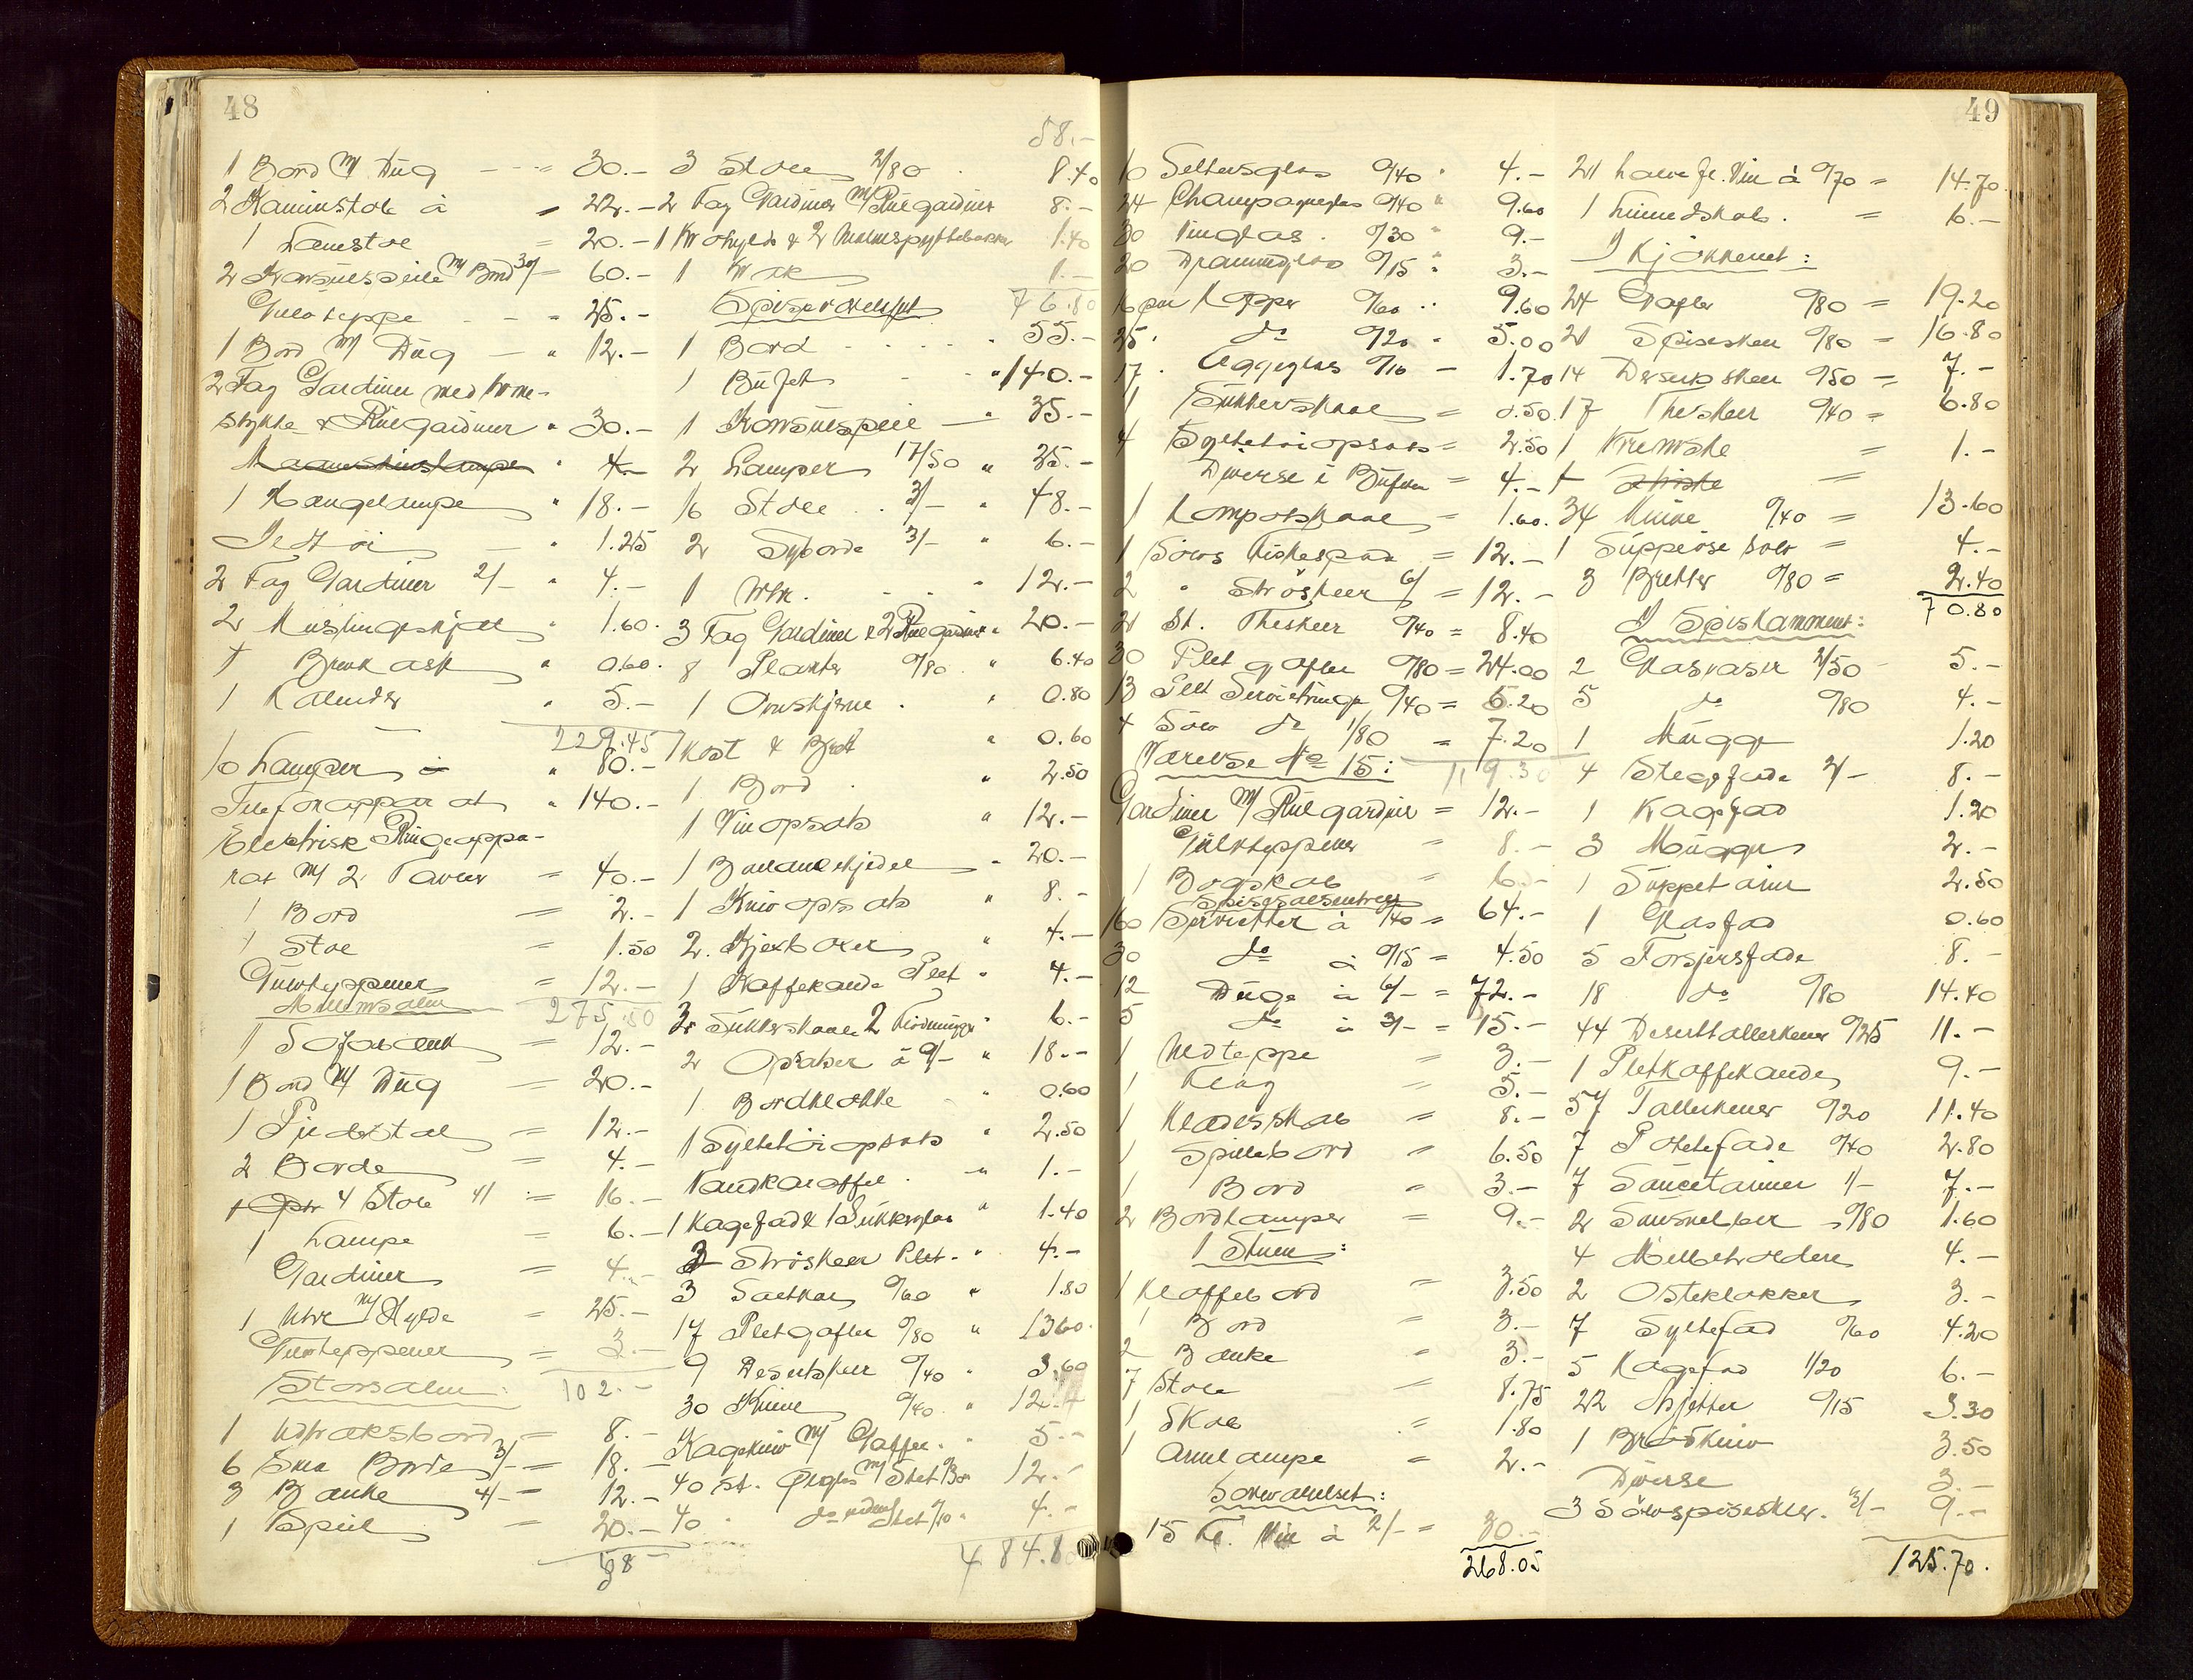 48
1 Bord m/ Dug - - = 30.-
2 Kaminstole à = 22.-
1 Lænestol = 20.-
2 Konsulspeile m/ Bord 30/ = 60.-
Gulvteppe - - = 25.-
1 Bord m/ Dug - " 12.-
2 Fag Gardiner med
stykke & Rulgardiner " 30.-
" 4.-
1 Hængelampe " 18.-
" 1.25
2 Fag Gardiner 2/- " 4.-
2 Muslingskjæl " 1.60.
1 ask " 0.60.
1 Kalender " 5.-
229.45
10 Lamper à " 80.-
Telefonapparat " 140.-
Elektrisk Ringeappa-
rat m/ 2 Tavler = 40.-
1 Bord = 2.-
1 Stol = 1.50
Gulvteppener = 12.-
Mellemsalen 275.50
1 Sofabenk = 12.-
1 Bord m/ Dug = 20.-
1 Piedestal = 12.-
2 Borde = 4.-
4 Stole 4/ = 16.-
1 Lampe = 6.-
Gardiner = 4.-
1 Uhr m/ Hylde = 25.-
Gulvteppener = 3.-
Storsalen: 102.-
1 Udtræksbord = 8.-
6 Smaa Borde 3/- = 18.-
3 Bænke 4/- = 12.-
1 Speil = 20.-
58
58.-
3 Stole 2/80 8.40
2 Fag Gardiner m/ Rulgardiner 8.-
1 & 2 1.40
1 Krak 1.-
Spiseværelset 76.80
1 Bord - - - - 55.-
1 Bufet - - " 140.-
1 Konsulspeil - " 35.-
2 Lamper 17/50 " 35.-
16 Stole . . 3/- " 48.-
2 Syborde 3/- " 6.-
1 Uhr. - - " 12.-
3 Fag Gardiner & 2 Rulgardiner " 20.-
8 Planter 0/80 " 6.40
1 Ovnskjerm . " 0.80
1 Kost & Brett " 0.60
1 Bord . " 2.50
1 Vinopsats " 12.-
1 " 20.-
1 Knivopsats " 8.-
2 Kjexboxer " 4.-
1 Kaffekande Plet " 4.-
Sukkerskaale 2 Flødemugger " 6.-
2 Opsatser à 9/- " 18.-
1 Bordklokke " 0.60
1 Syltetøiopsats " 2.50
Vandkaraffel . " 1.-
1 Kagefad & 1 Sukkerglas " 1.40
Strøskeer Plet - " 4.-
3 Saltkar 0/60 " 1.80
17 Pletgafler 0/80 " 13.60
9 Desertskeer 0/40 " 3.60
30 Knive 0/40 " 12.-
Kagekniv m/ Gaffel. " 5.-
40 st. Ølglas m/ Stet 12.-
40 " do uden Stet 0/10 " 4.-
484.8
49
10 Seltersglas 0/40 " 4.-
24 Champagneglas 0/40 " 9.60
30 Vinglas . 0/30 " 9.-
20 Dramsglas 0/15 " 3.-
16 par Kopper 0/60 " 9.60
25 " do 0/20 " 5.00
17 . Æggeglas 0/10 - 1.70
1 Sukkerskaal = 0.50
4 Syltetøiopsats = 2.50
Diverse i Bufeen = 4.-
1 Kompotskaal = 1.60.
1 Sølvs Fiskespade = 12.-
2 " Strøskeer 6/ = 12.-
21 St. Theskeer 0/40 = 8.40
30 Plet gafler 0/80 = 24.00
13 Plet Servietringe 0/40 = 5.20
4 Sølv do 1/80 = 7.20
Værelse No 15: 119.30
Gardiner m/ Rulgardiner = 12.-
Gulvteppener = 8.-
1 Bogskab = 6.-
160 Servietter à 0/40 = 64.-
30 do à 0/15 = 4.50
12 Duge à 6/- = 72.-
5 do à 3/- = 15.-
1 = 3.-
1 = 5.-
1 Klædesskab = 8.-
1 Spillebord = 6.50
1 Bord = 3.-
2 Bordlamper = 9.-
I Stuen:
1 Klaffebord = 3.50
1 Bord = 3.-
2 Bænke " 3.-
7 Stole = 8.75
1 Skab = 1.80
1 Armlampe = 2.-
15 Fl. Vin à 2/- = 30.-
268.05
21 halve fl. Vin à 0/70 = 14.70
1 Linnedskab. = 6.-
I Kjøkkenet:
24 Gafler 0/80 = 19.20
21 Spiseskeer 0/80 = 16.80
14 Desertskeer 0/50 = 7.-
17 Theskeer 0/40 = 6.80
1 = 1.-
34 Knive 0/40 = 13.60
1 Suppeøse Sølv = 4.-
3 Bretter 0/80 = 2.40
70.80
I Spiskammeret:
2 Glasvaser 2/50 5.-
5 do 0/80 4.-
1 Mugge 1.20
4 Stegefade 2/- 8.-
1 Kagefad 1.20
3 Mugger 2.-
1 Suppeterin 2.50
1 Glasfad 0.60
5 Forsjersfade 8.-
18 do 0/80 14.40
44 Deserttallerkener 0/25 11.-
1 Pletkaffekande 9.-
57 Tallerkener 0/20 11.40
7 Potetefade 0/40 2.80
7 Sauceterriner 1/- 7.-
2 - 0/80 1.60
4 Melbeholdere 4.-
2 Osteklokker 3.-
7 Syltefad 0/60 4.20
5 Kagefad 1/20 6.-
22 Asjetter 0/15 3.30
1 Brødkniv 3.50
Diverse 3.-
3 Sølvspiseskeer. 3/- 9.-
125.70.